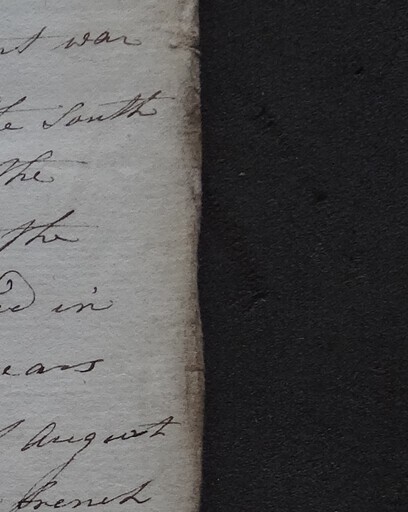 war
South
the
the
in
ears
August
french